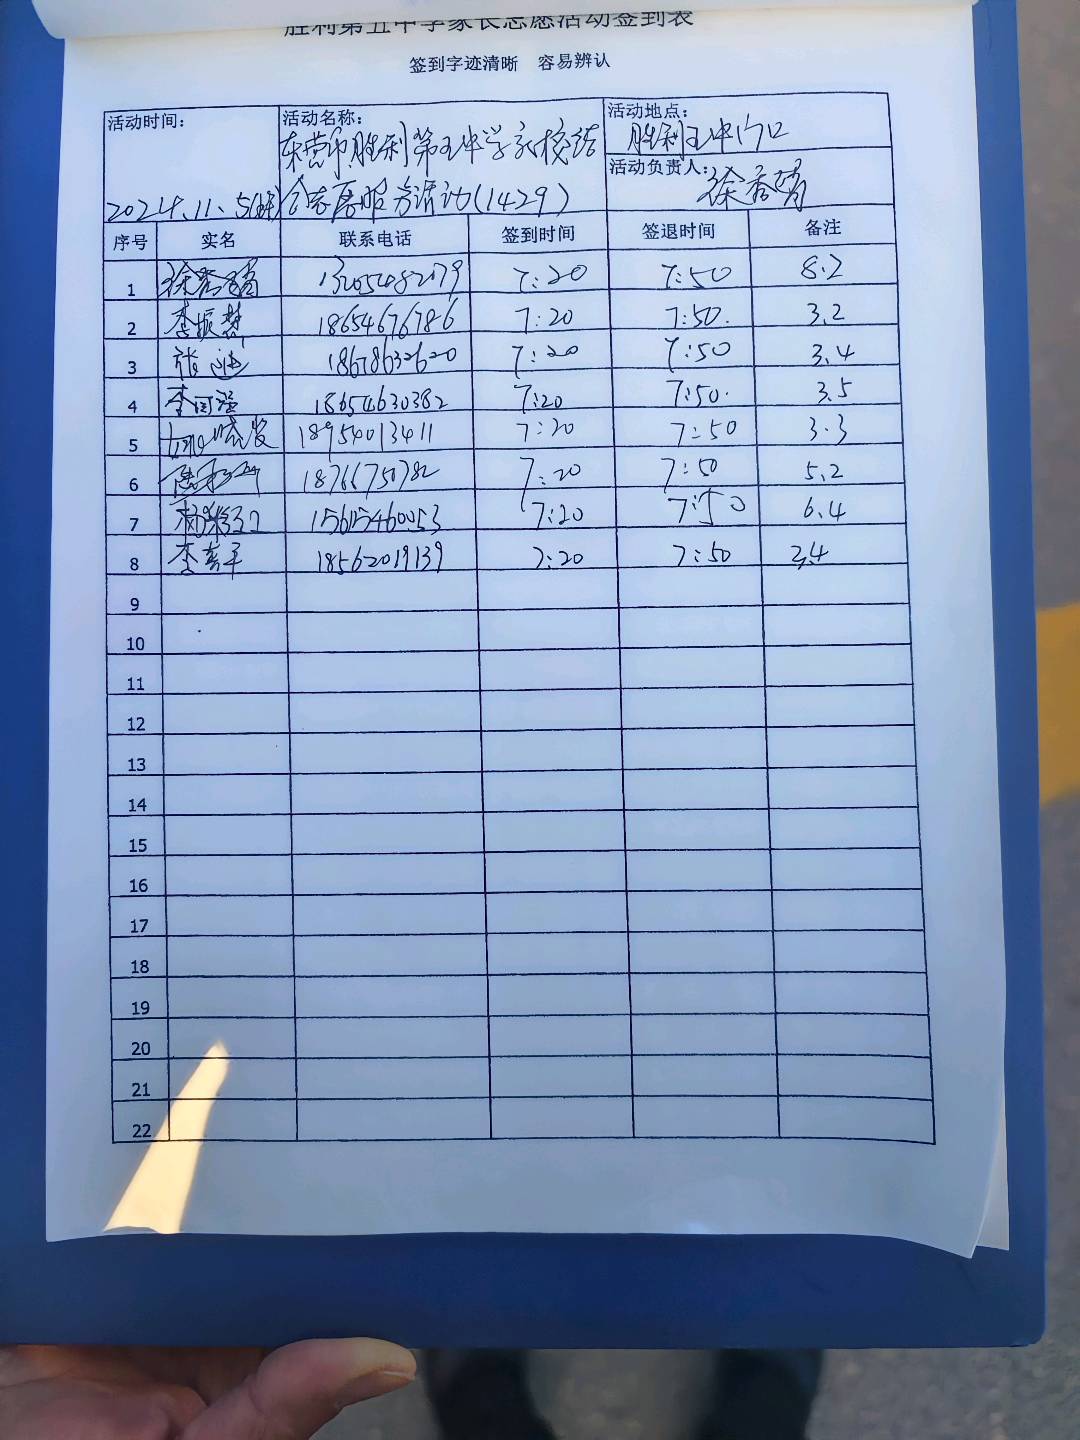 胜利第五中学家长志愿活动签到表
签到字迹清晰 容易辨认
活动时间: 活动名称: 活动地点:
东营市胜利第五中学家校结 胜利五中门口
活动负责人: 徐秀婧
2024.11.5 合志愿服务活动(1429)
序号 实名 联系电话 签到时间 签退时间 备注
1 徐秀婧 7:20 7:50 8.2
2 李振楚 18654676786 7:20 7:50. 3.2
3 张迪 18678632620 7:20 7:50 3.4
4 李河强 18654630382 7:20 7:50. 3.5
5 18954013411 7:20 7:50 3.3
6 18766750782 7:20 7:50 5.2
7 15615460053 7:20 7:50 6.4
8 李春平 18562019139 7:20 7:50 2.4
9
10
11
12
13
14
15
16
17
18
19
20
21
22